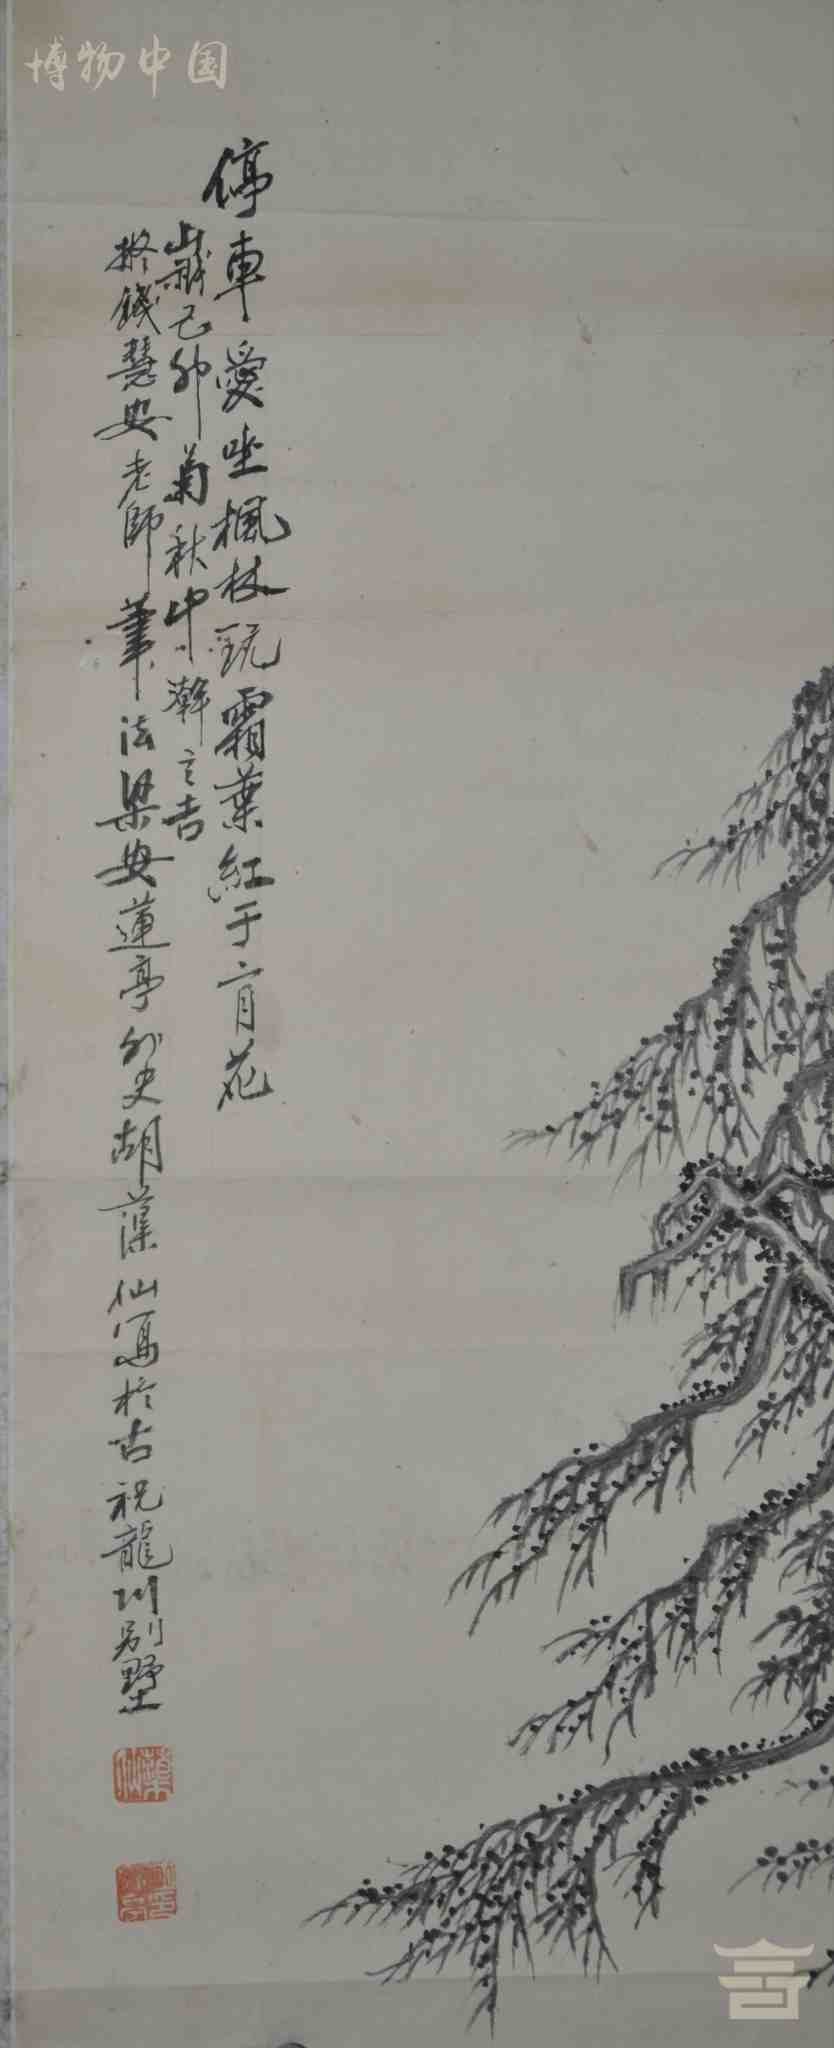 博物中国
停車愛坐楓林玩霜葉紅于二月花
歲己卯菊秋中澣之吉
擬錢慧安老師筆法梁安蓮亭外史胡藻仙寫於古祝龍川別墅